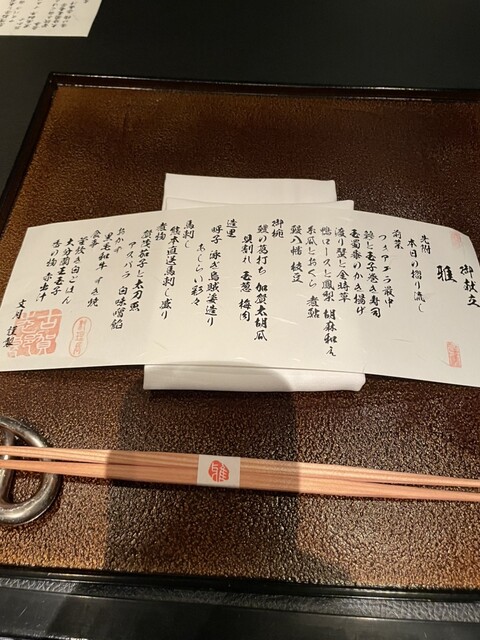 御献立
雅
先附
本日の摺り流し
前菜
つきアエラ最中
鱧と玉子巻き寿司
玉蜀黍のかき揚げ
渡り蟹と金時草
鴨ロースと鳳梨 胡麻和え
糸瓜とおくら 煮鮑
鰻八幡 枝豆
御椀
鱧の葛打ち 加賀太胡瓜
奥割れ 玉葱 梅肉
造里
呼子 泳ぎ烏賊姿造り
あしらい彩々
馬刺し
熊本直送馬刺し盛り
煮物
賀茂茄子と太刀魚
アスパラ 白味噌餡
おかず
黒毛和牛 すき焼
食事
釜炊き白ごはん
大分蘭王玉子
香の物 赤出汁
文月 謹製
雅